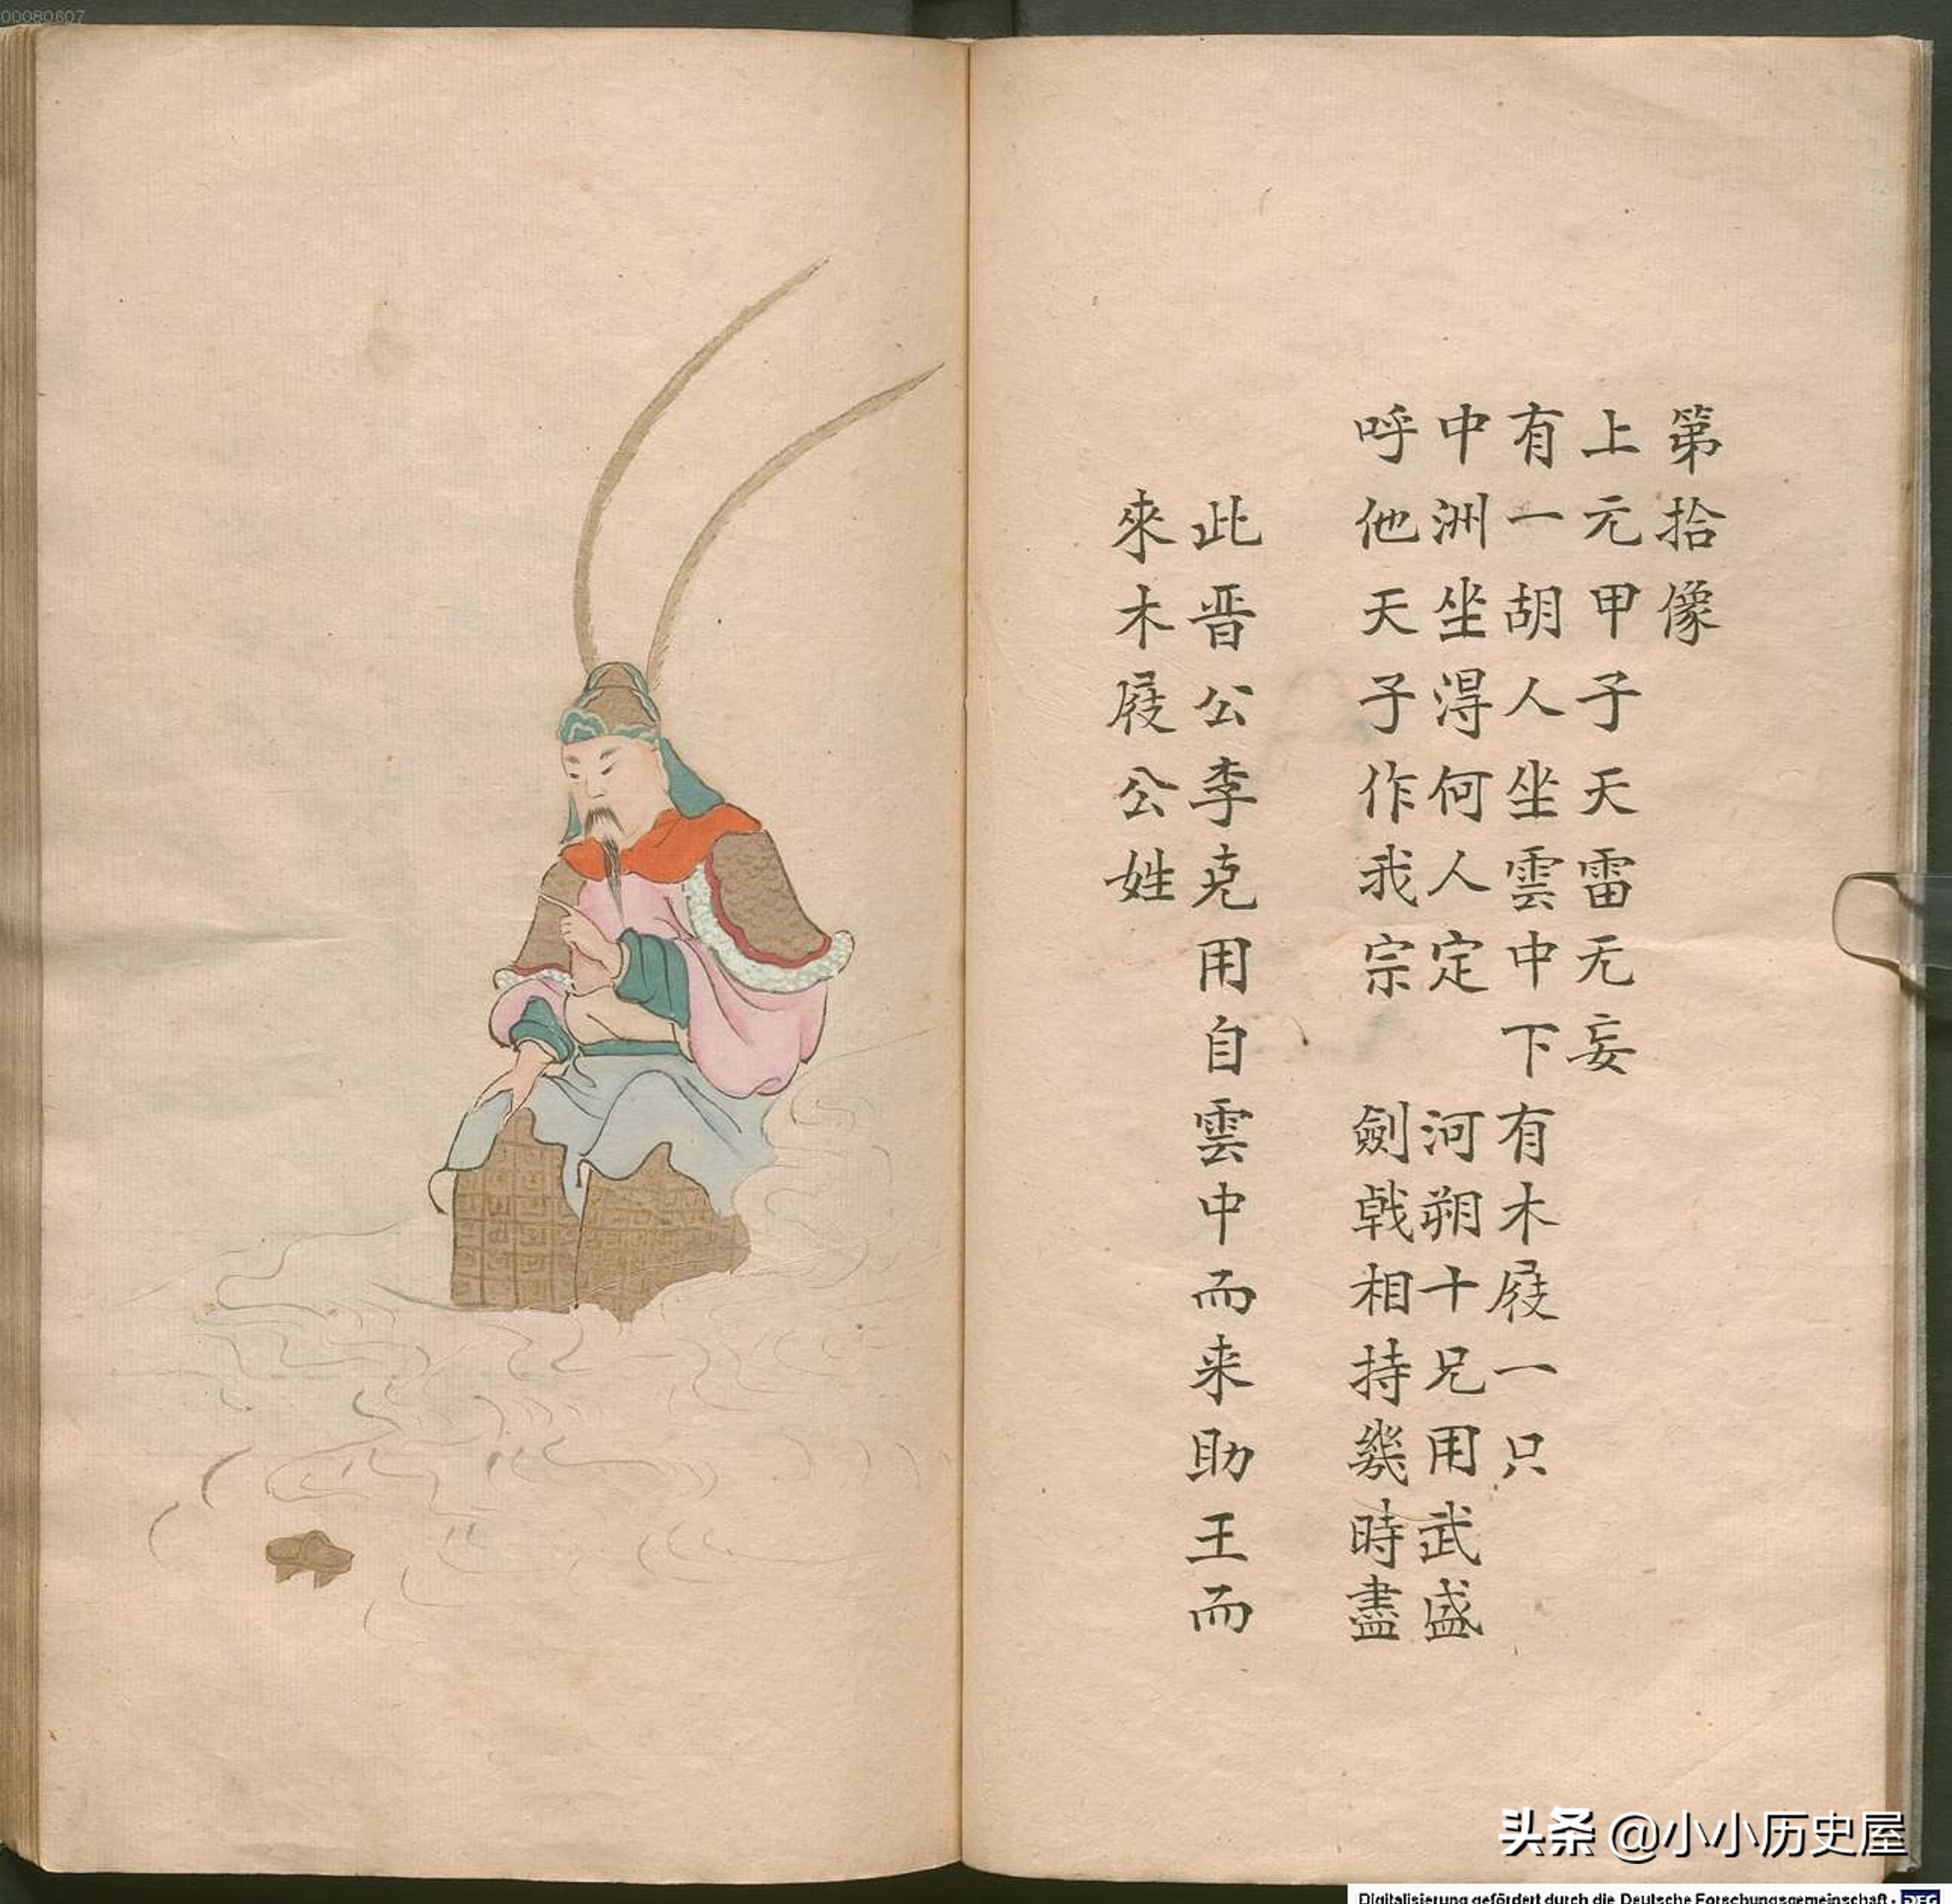 00080607
第拾像
上元甲子天雷无妄
有一胡人坐雲中下有木屐一只
中洲坐淂何人定 河朔十兄用武盛
呼他天子作我宗 劍戟相持幾時盡
此晋公李克用自雲中而来助王而
來木屐公姓
头条 @小小历史屋
Digitalisierung gefördert durch die Deutsche Forschungsgemeinschaft - DFG